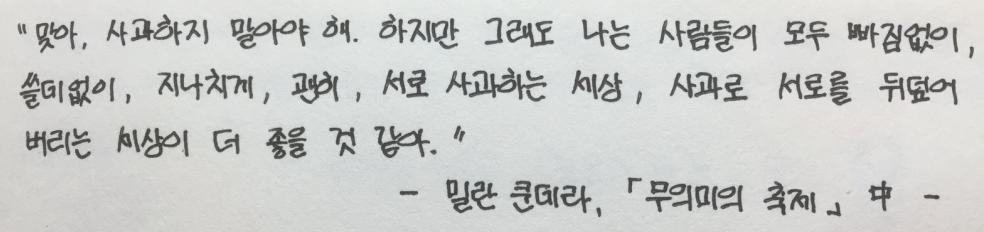 "맞아, 사과하지 말아야 해. 하지만 그래도 나는 사람들이 모두 빠짐없이,
쓸데없이, 지나치게, 괜히, 서로 사과하는 세상, 사과로 서로를 뒤덮어
버리는 세상이 더 좋을 것 같아."
- 밀란 쿤데라, 「무의미의 축제」 中 -